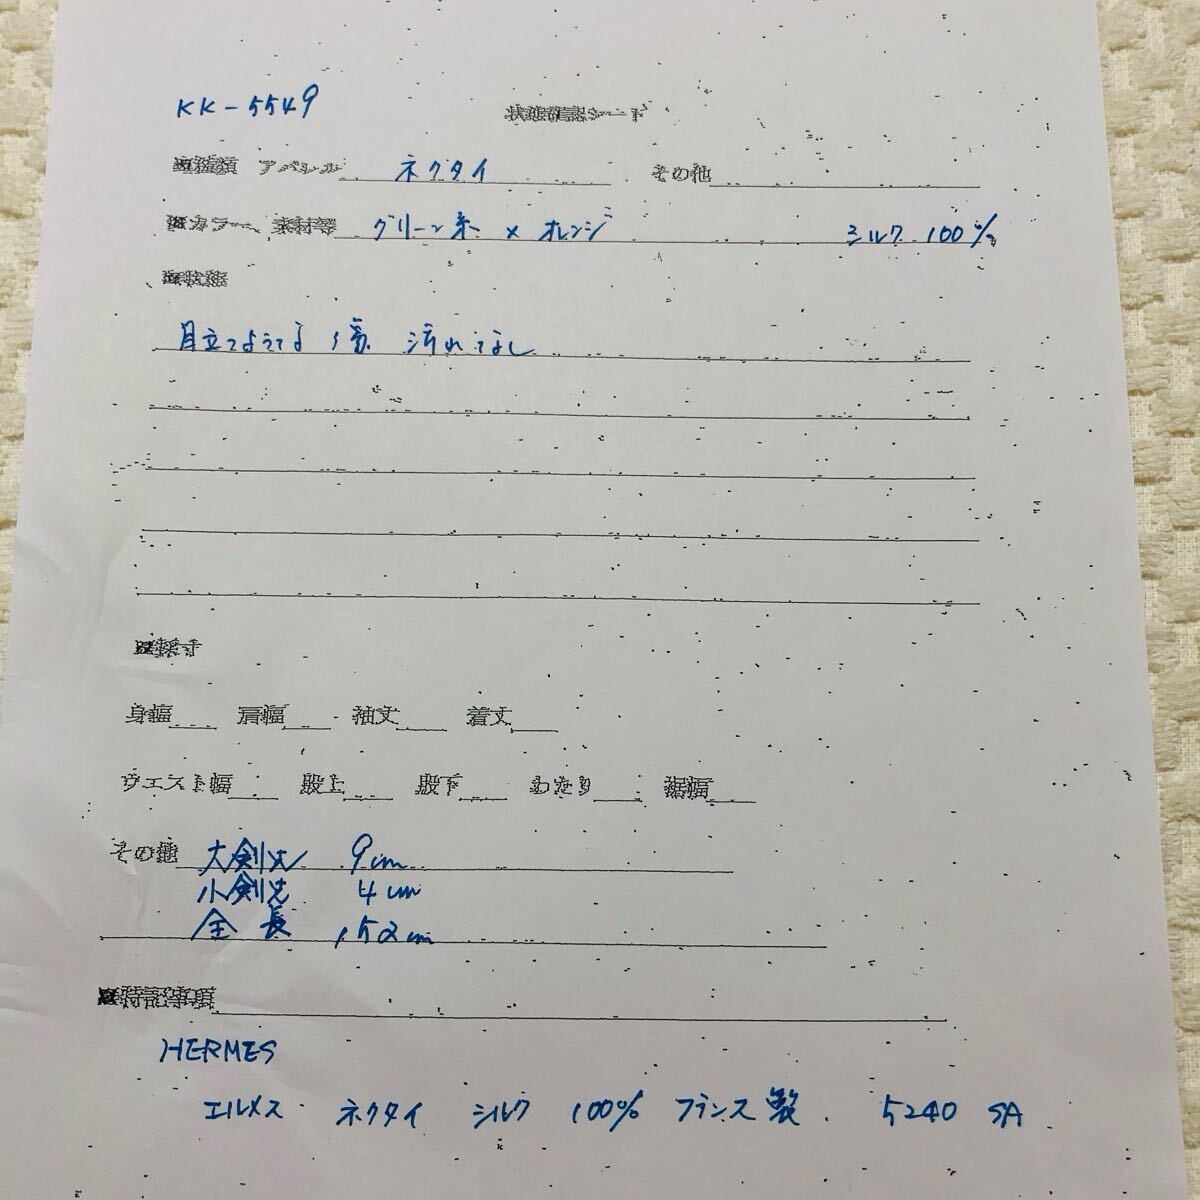 KK-5549
状態確認シート
※種類 アパレル ネクタイ その他
※カラー、素材等 グリーン系 × オレンジ シルク 100%
※状態
目立つような傷 汚れなし
※採寸
身幅 肩幅 袖丈 着丈
ウエスト幅 股上 股下 わたり 裾幅
その他 大剣先 9cm
小剣先 4cm
全長 152cm
※特記事項
HERMES
エルメス ネクタイ シルク 100% フランス製 5240 SA